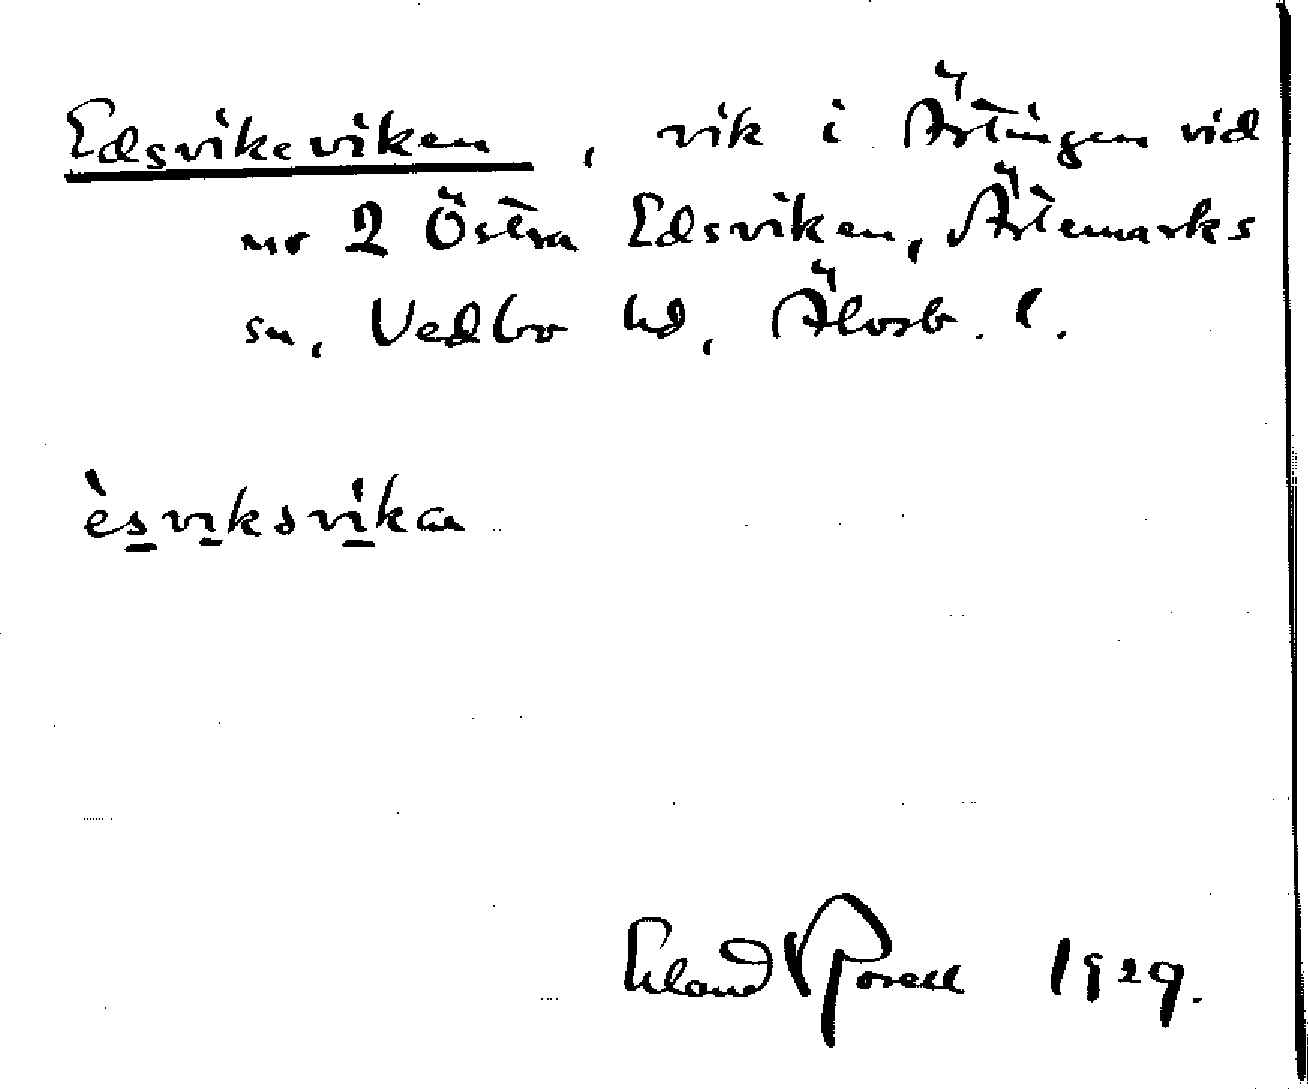 Edsvikeviken, vik i Ärtingen vid
nr 2 Östra Edsviken, Ärtemarks
sn, Vedbo hd, Älvsb. l.
èsviksvìkan
Erland Rosell 1929.